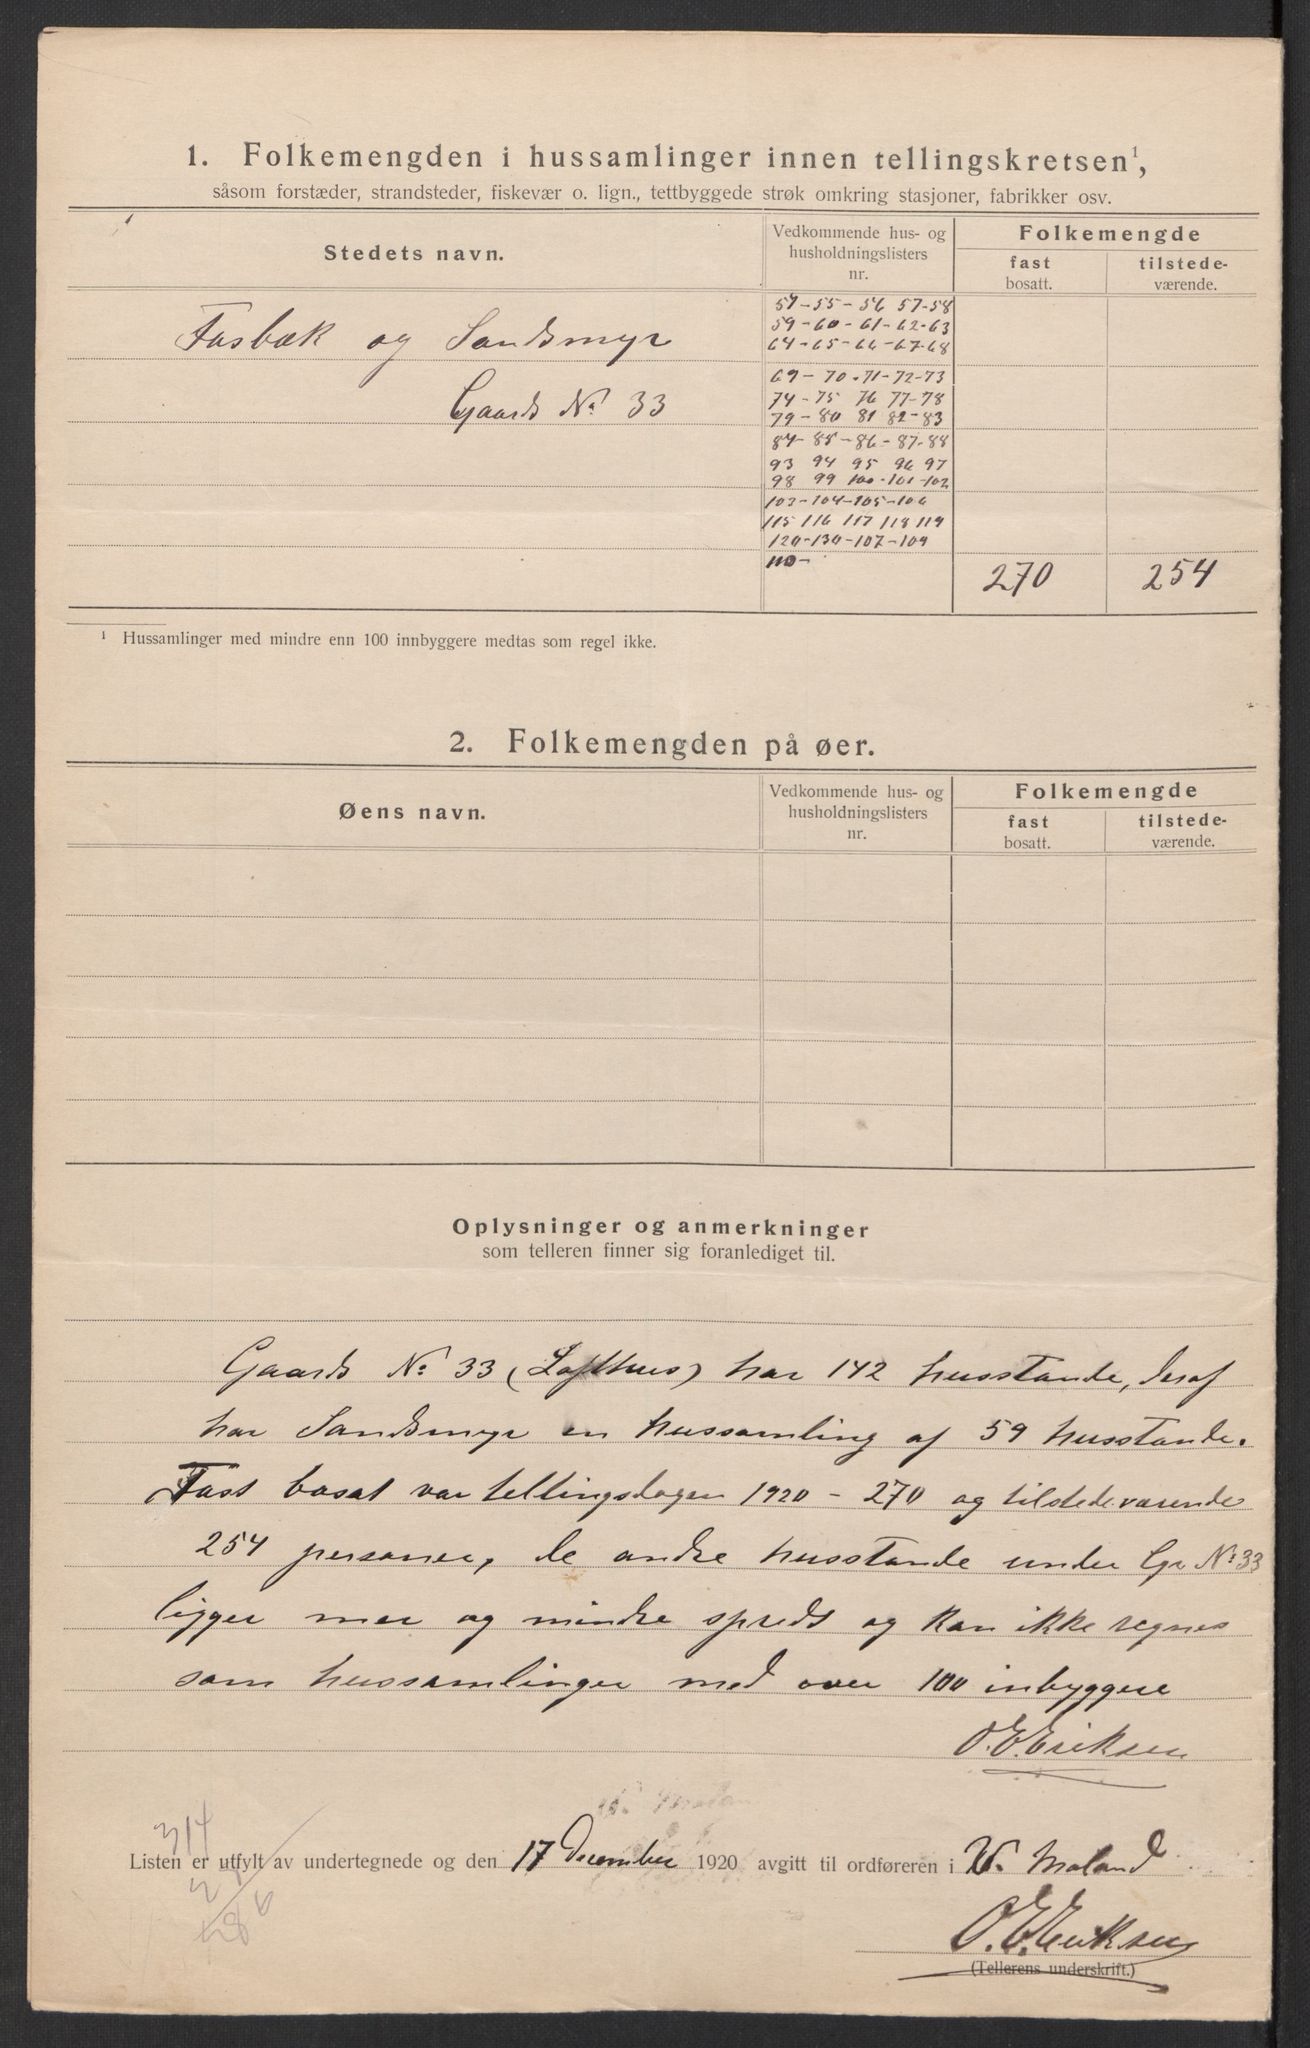 1. Folkemengden i hussamlinger innen tellingskretsen¹,
såsom forstæder, strandsteder, fiskevær o. lign., tettbyggede strøk omkring stasjoner, fabrikker osv.
Stedets navn.
Vedkommende hus- og
husholdningslisters
nr.
Folkemengde
fast
bosatt.
tilstede-
værende.
Fasbæk og Sandsmyr
Gaards No 33
54-55-56 57-58
59-60-61-62-63
64-65-66-67-68
69-70-71-72-73
74-75 76 77-78
79-80 81 82-83
84-85-86-87-88
93 94 95 96 97
98 99 100-101-102
103-104-105-106
115 116 117 118 119
120-130-107-109
110-
270 254
¹ Hussamlinger med mindre enn 100 innbyggere medtas som regel ikke.
2. Folkemengden på øer.
Øens navn.
Vedkommende hus- og
husholdningslisters
nr.
Folkemengde
fast
bosatt.
tilstede-
værende.
Oplysninger og anmerkninger
som telleren finner sig foranlediget til.
Gaards No 33 (Lofthus) har 142 husstande, deraf
har Sandsmyr en hussamling af 59 husstande.
Fast bosat var tellingsdagen 1920 - 270 og tilstedeværende
254 personer, de andre husstande under Gr No 33
ligger mer og mindre spredt og kan ikke regnes
som hussamlinger med over 100 inbyggere
O.E.Eriksen
314
Listen er utfylt av undertegnede og den 17 December 1920 avgitt til ordføreren i V. Moland
28
286
O.E.Eriksen
(Tellerens underskrift.)